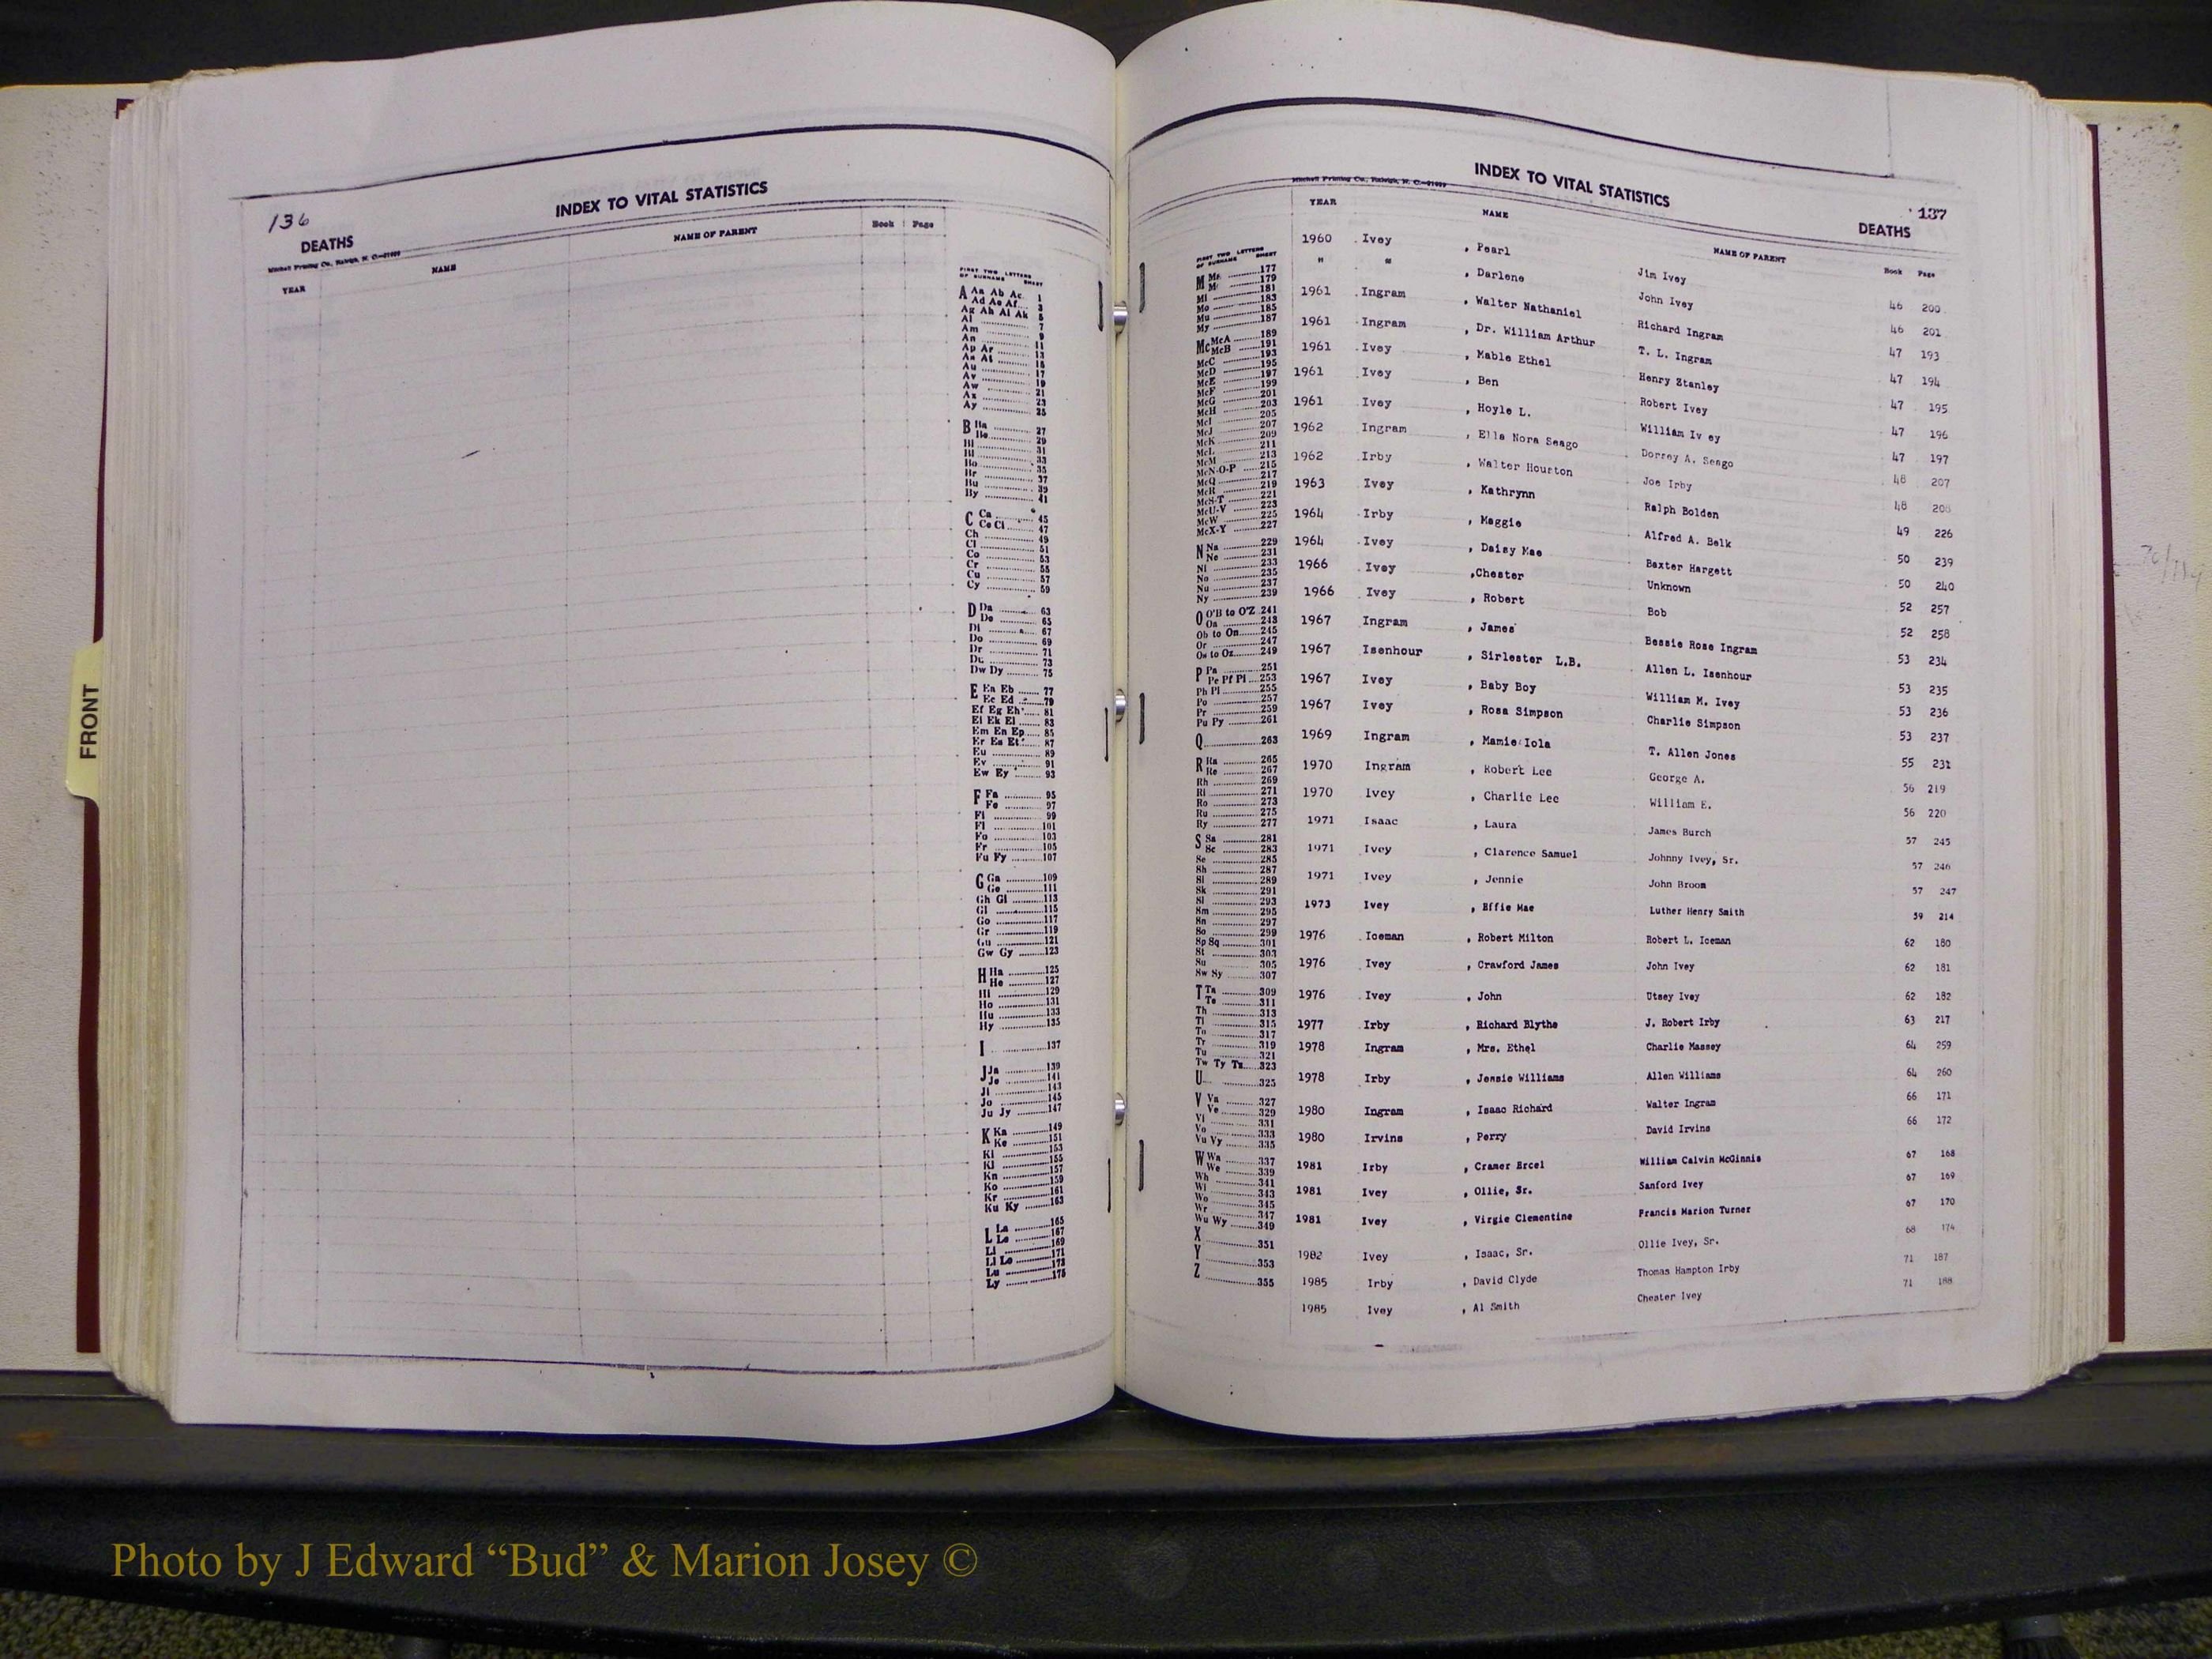 136
INDEX TO VITAL STATISTICS
DEATHS
Mitchell Printing Co., Raleigh, N. C.
YEAR NAME NAME OF PARENT Book Page
FIRST TWO LETTERS
OF SURNAME SHEET
A Aa Ab Ac 1
Ad Ae Af 3
Ag Ah Ai Ak 5
Al 7
Am 9
An 11
Ap Ar 13
As At 15
Au 17
Av 19
Aw 21
Ax 23
Ay 25
B Ba 27
Be 29
Bi 31
Bl 33
Bo 35
Br 37
Bu 39
By 41
C Ca 45
Ce Ci 47
Ch 49
Cl 51
Co 53
Cr 55
Cu 57
Cy 59
D Da 63
De 65
Di 67
Do 69
Dr 71
Du 73
Dw Dy 75
E Ea Eb 77
Ec Ed 79
Ef Eg Eh 81
Ei Ek El 83
Em En Ep 85
Er Es Et 87
Eu 89
Ev 91
Ew Ey 93
F Fa 95
Fe 97
Fi 99
Fl 101
Fo 103
Fr 105
Fu Fy 107
G Ga 109
Ge 111
Gh Gi 113
Gl 115
Go 117
Gr 119
Gu 121
Gw Gy 123
H Ha 125
He 127
Hi 129
Ho 131
Hu 133
Hy 135
I 137
J Ja 139
Je 141
Ji 143
Jo 145
Ju Jy 147
K Ka 149
Ke 151
Ki 153
Kl 155
Kn 157
Ko 159
Kr 161
Ku Ky 163
L La 165
Le 167
Li 169
Ll Lo 171
Lu 173
Ly 175
FRONT
INDEX TO VITAL STATISTICS
Mitchell Printing Co., Raleigh, N. C.
137
DEATHS
YEAR NAME NAME OF PARENT Book Page
FIRST TWO LETTERS
OF SURNAME SHEET
M Ma 177
Me 179
Mi 181
Mo 183
Mu 185
My 187
Mc McA 189
McB 191
McC 193
McD 195
McE 197
McF 199
McG 201
McH 203
McI 205
McJ 207
McK 209
McL 211
McM 213
McN-O-P 215
McQ 217
McR 219
McS-T 221
McU-V 223
McW 225
McX-Y 227
N Na 229
Ne 231
Ni 233
No 235
Nu 237
Ny 239
O O'B to O'Z 241
Oa 243
Ob to On 245
Or 247
Os to Oz 249
P Pa 251
Pe Pf Pi 253
Ph Pl 255
Po 257
Pr 259
Pu Py 261
Q 263
R Ra 265
Re 267
Rh 269
Ri 271
Ro 273
Ru 275
Ry 277
S Sa 281
Sc 283
Se 285
Sh 287
Si 289
Sk 291
Sl 293
Sm 295
Sn 297
So 299
Sp Sq 301
St 303
Su 305
Sw Sy 307
T Ta 309
Te 311
Th 313
Ti 315
To 317
Tr 319
Tu 321
Tw Ty Tz 323
U 325
V Va 327
Ve 329
Vi 331
Vo 333
Vu Vy 335
W Wa 337
We 339
Wh 341
Wi 343
Wo 345
Wr 347
Wu Wy 349
X 351
Y 353
Z 355
1960 Ivey , Pearl Jim Ivey 46 200
" " , Darlene John Ivey 46 201
1961 Ingram , Walter Nathaniel Richard Ingram 47 193
1961 Ingram , Dr. William Arthur T. L. Ingram 47 194
1961 Ivey , Mable Ethel Henry Stanley 47 195
1961 Ivey , Ben Robert Ivey 47 196
1961 Ivey , Hoyle L. William Iv ey 47 197
1962 Ingram , Ella Nora Seago Dorsey A. Seago 48 207
1962 Irby , Walter Houston Joe Irby 48 208
1963 Ivey , Kathrynn Ralph Bolden 49 226
1964 Irby , Maggie Alfred A. Belk 50 239
1964 Ivey , Daisy Mae Baxter Hargett 50 240
1966 Ivey ,Chester Unknown 52 257
1966 Ivey , Robert Bob 52 258
1967 Ingram , James Bessie Rose Ingram 53 234
1967 Isenhour , Sirlester L.B. Allen L. Isenhour 53 235
1967 Ivey , Baby Boy William M. Ivey 53 236
1967 Ivey , Rosa Simpson Charlie Simpson 53 237
1969 Ingram , Mamie Iola T. Allen Jones 55 232
1970 Ingram , Robert Lee George A. 56 219
1970 Ivey , Charlie Lee William E. 56 220
1971 Isaac , Laura James Burch 57 245
1971 Ivey , Clarence Samuel Johnny Ivey, Sr. 57 246
1971 Ivey , Jennie John Broom 57 247
1973 Ivey , Effie Mae Luther Henry Smith 59 214
1976 Iceman , Robert Milton Robert L. Iceman 62 180
1976 Ivey , Crawford James John Ivey 62 181
1976 Ivey , John Utsey Ivey 62 182
1977 Irby , Richard Blythe J. Robert Irby 63 217
1978 Ingram , Mrs. Ethel Charlie Massey 64 259
1978 Irby , Jessie Williams Allen Williams 64 260
1980 Ingram , Isaac Richard Walter Ingram 66 171
1980 Irvins , Perry David Irvins 66 172
1981 Irby , Cramer Ercel William Calvin McGinnis 67 168
1981 Ivey , Ollie, Sr. Sanford Ivey 67 169
1981 Ivey , Virgie Clementine Francis Marion Turner 67 170
1982 Ivey , Isaac, Sr. Ollie Ivey, Sr. 68 174
1985 Irby , David Clyde Thomas Hampton Irby 71 187
1985 Ivey , Al Smith Chester Ivey 71 188
Photo by J Edward “Bud” & Marion Josey ©